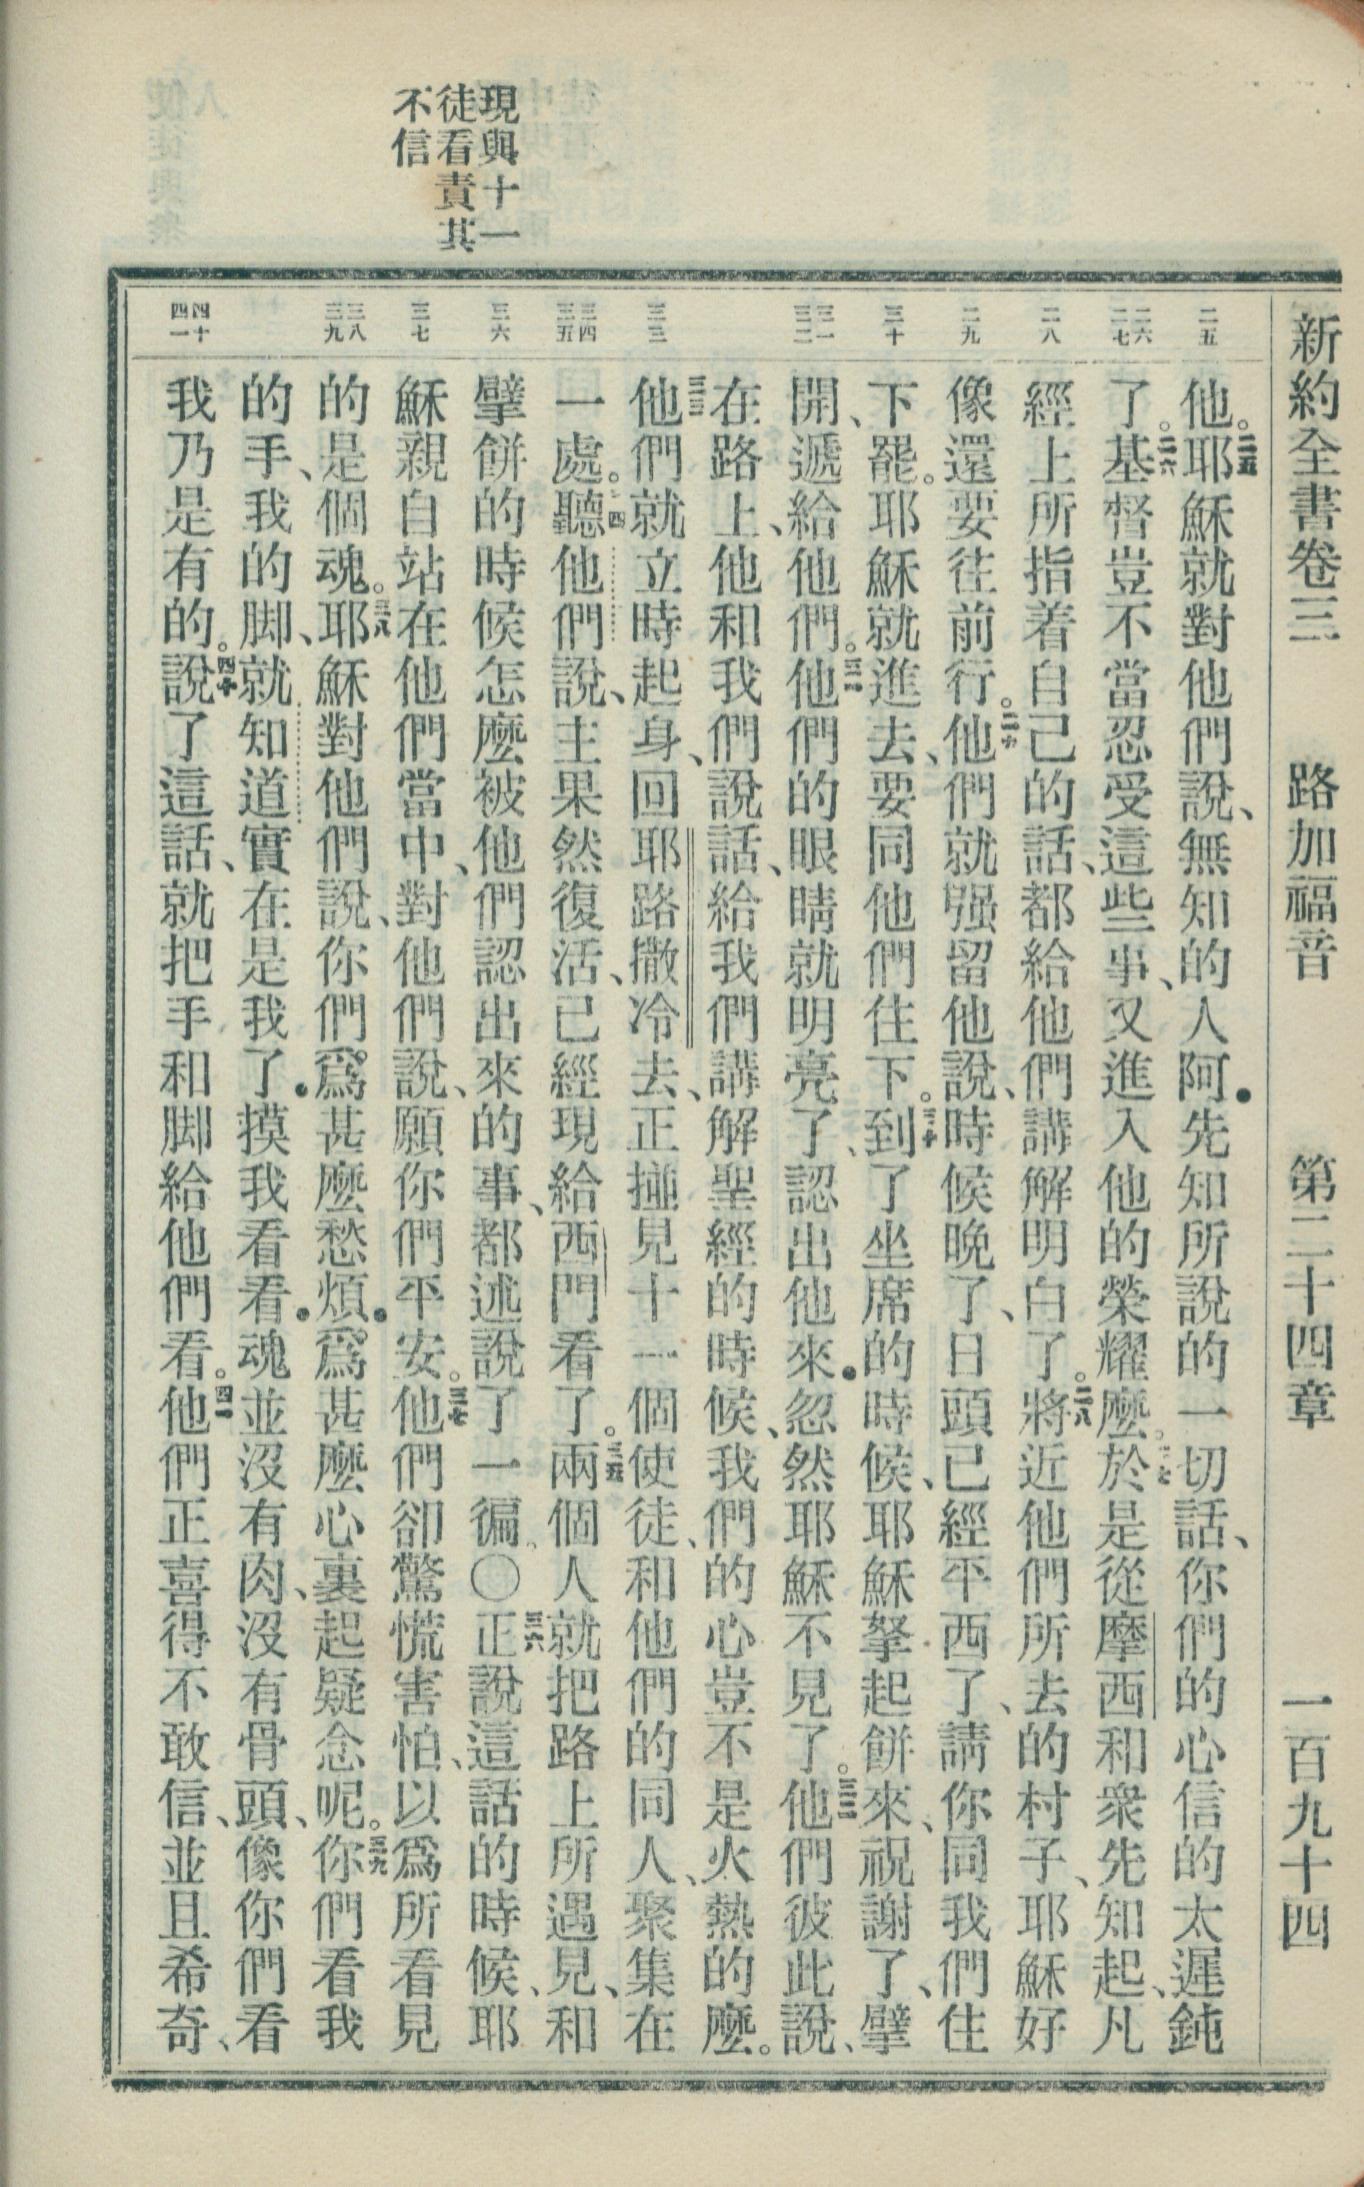 新約全書卷三　路加福音　第二十四章　一百九十四
現與十一
徒看責其
不信
二五
二六
二七
二八
二九
三十
三一
三二
三三
三四
三五
三六
三七
三八
三九
四十
四一
他。二五耶穌就對他們說、無知的人阿．先知所說的一切話、你們的心信的太遲鈍
了。二六基督豈不當忍受這些事、又進入他的榮耀麼。二七於是從摩西和衆先知起、凡
經上所指着自己的話、都給他們講解明白了。二八將近他們所去的村子、耶穌好
像還要往前行。二九他們就强留他說、時候晚了、日頭已經平西了、請你同我們住
下罷。耶穌就進去、要同他們住下。三十到了坐席的時候、耶穌拏起餅來、祝謝了、擘
開、遞給他們。三一他們的眼睛就明亮了、認出他來．忽然耶穌不見了。三二他們彼此說、
在路上、他和我們說話、給我們講解聖經的時候、我們的心豈不是火熱的麼。
三三他們就立時起身、回耶路撒冷去、正撞見十一個使徒、和他們的同人、聚集在
一處。三四聽他們說、主果然復活、已經現給西門看了。三五兩個人就把路上所遇見、和
擘餅的時候怎麼被他們認出來的事、都述說了一徧。〇三六正說這話的時候、耶
穌親自站在他們當中、對他們說、願你們平安。三七他們卻驚慌害怕、以爲所看見
的是個魂。三八耶穌對他們說、你們爲甚麼愁煩．爲甚麼心裏起疑念呢。三九你們看我
的手、我的脚、就知道實在是我了．摸我看看．魂並沒有肉、沒有骨頭、像你們看
我乃是有的。四十說了這話、就把手和脚給他們看。四一他們正喜得不敢信、並且希奇、